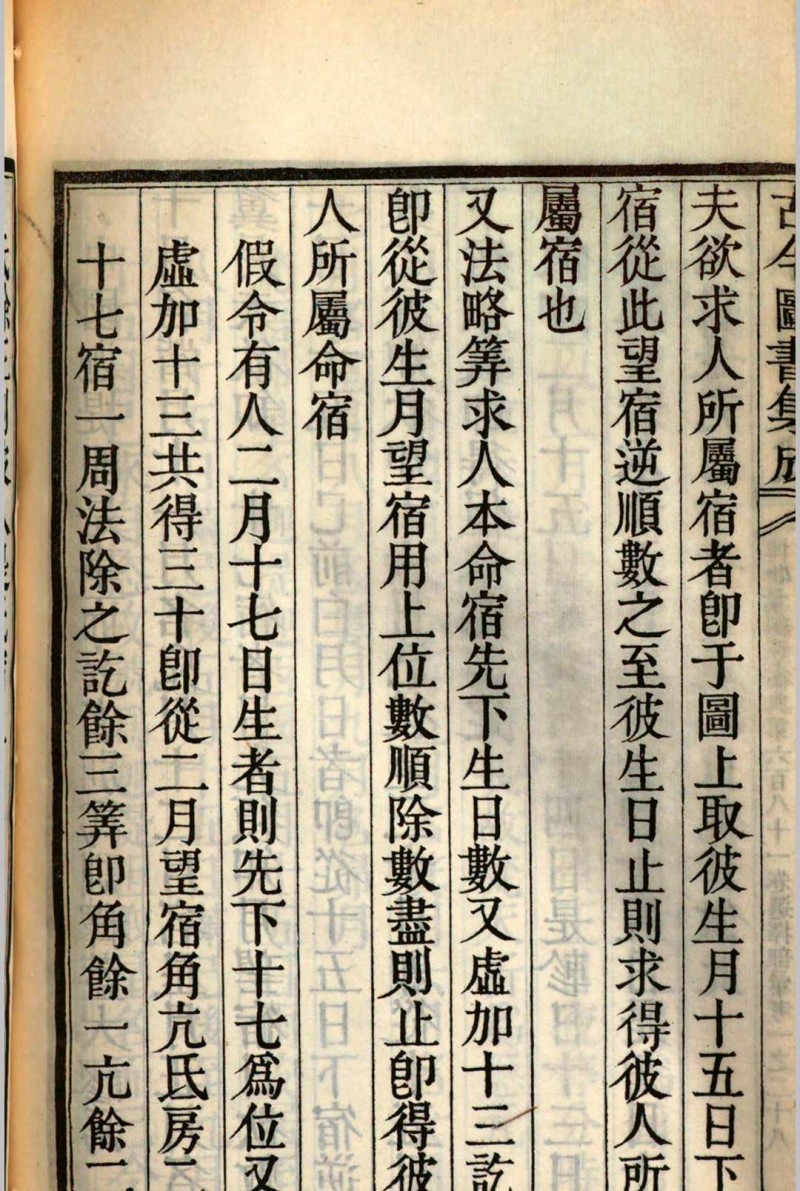 古今圖書集成
夫欲求人所屬宿者卽于圖上取彼生月十五日下
宿從此望宿逆順數之至彼生日止則求得彼人所
屬宿也
又法略筭求人本命宿先下生日數又虛加十三訖
卽從彼生月望宿用上位數順除數盡則止卽得彼
人所屬命宿
假令有人二月十七日生者則先下十七爲位又
虛加十三共得三十卽從二月望宿角亢氐房
十七宿一周法除之訖餘三筭卽角餘一亢餘二